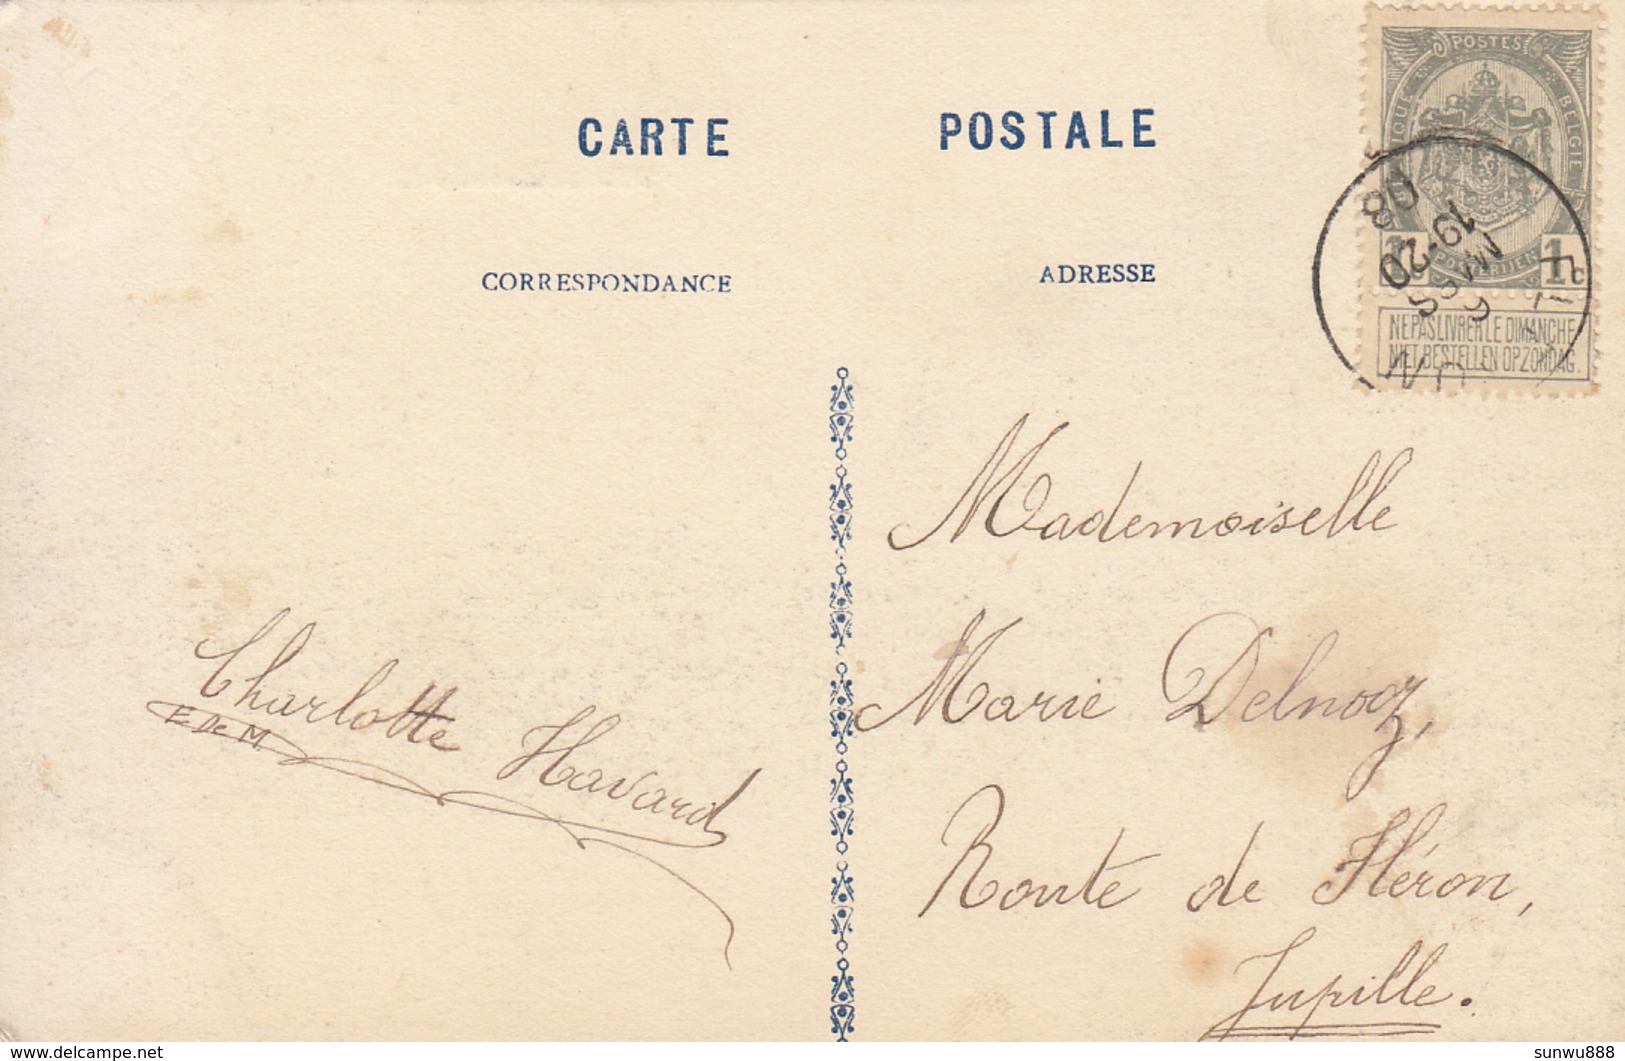 CARTE POSTALE
CORRESPONDANCE
ADRESSE
POSTES
BELGIE
1 1c
NE PAS LIVRER LE DIMANCHE
NIET BESTELLEN OP ZONDAG.
6 MARS
19-20
08
Mademoiselle
Marie Delnooz,
Route de Fléron,
Jupille.
Charlotte Havard
E De M
delcampe.net
sunwu888